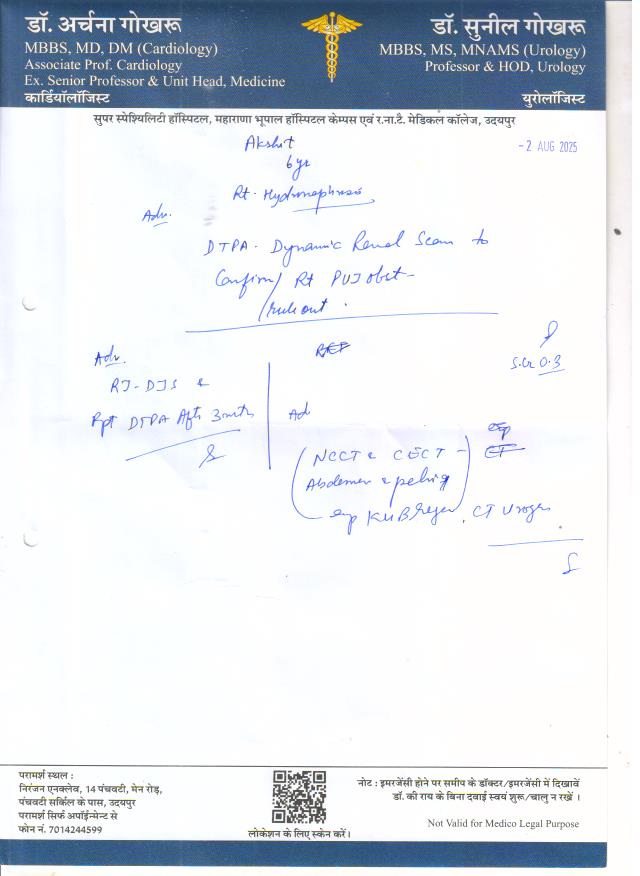 डॉ. अर्चना गोखरू
MBBS, MD, DM (Cardiology)
Associate Prof. Cardiology
Ex. Senior Professor & Unit Head, Medicine
कार्डियॉलॉजिस्ट
डॉ. सुनील गोखरू
MBBS, MS, MNAMS (Urology)
Professor & HOD, Urology
युरोलॉजिस्ट
सुपर स्पेश्यिलिटी हॉस्पिटल, महाराणा भूपाल हॉस्पिटल केम्पस एवं र.ना.टै. मेडिकल कॉलेज, उदयपुर
Akshit
- 2 AUG 2025
6 yr
Rt. Hydronephrosis
Adv.
DTPA - Dynamic Renal Scan to
Confirm/ Rt PUJ obst-
/rule out.
S.Cr 0.3
Adv.
RT-DJS &
Rpt DTPA Aftr 3 mths
Ad
(NCCT & CECT -
Abdomen & pelvis)
KUB Region, CT Urogr
परामर्श स्थल :
निरंजन एनक्लेव, 14 पंचवटी, मेन रोड़,
पंचवटी सर्किल के पास, उदयपुर
परामर्श सिर्फ अपॉईन्मेन्ट से
फोन नं. 7014244599
लोकेशन के लिए स्केन करें।
नोट : इमरजेंसी होने पर समीप के डॉक्टर/इमरजेंसी में दिखावें
डॉ. की राय के बिना दवाई स्वयं शुरू/चालु न रखें ।
Not Valid for Medico Legal Purpose